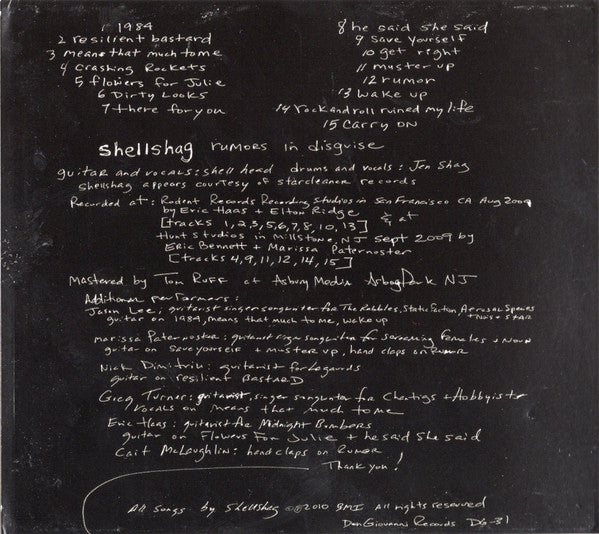 1 1984
2 resilient bastard
3 means that much to me
4 Crashing Rockets
5 flowers for Julie
6 Dirty Looks
7 there for you
8 he said she said
9 save yourself
10 get right
11 muster up
12 rumor
13 wake up
14 rock and roll ruined my life
15 Carry ON
Shellshag rumors in disguise
guitar and vocals: shell head drums and vocals: Jen Shag
Shellshag appears courtesy of starcleaner records
Recorded at: Rodent Records Recording studios in San Francisco CA Aug 2009
by Eric Haas + Elton Ridge
[tracks 1,2,3,5,6,7,8,10,13] & at
Hunt studios in Millstone, NJ sept 2009 by
Eric Bennett + Marissa Paternoster
[tracks 4,9,11,12,14,15]
Mastered by Tom Ruff at Asbury Media Asbury Park NJ
Additional performers:
Jason Lee: guitarist singer songwriter for The Rubbles, Static Faction, Aerosol Species
guitar on 1984, means that much to me, wake up
Marissa Paternoster: guitarist singer songwriter for screaming females + Noun
guitar on save yourself + muster up, hand claps on Rumor
Nick Dimitrib: guitarist for Legends
guitar on resilient BastARD
Greg Turner: guitarist, singer songwriter for Cheatings + Hobbyist
vocals on means that much to me
Eric Haas: guitarist for Midnight Bombers
guitar on Flowers For Julie + he said she said
Cait McLaughlin: handclaps on Rumor
Thank you!
All songs by Shellshag ©℗2010 BMI All rights reserved
Don Giovanni Records DG-31